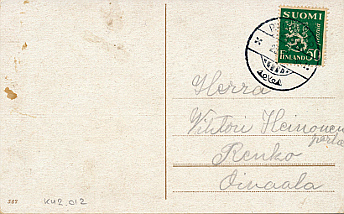 SUOMI
50
FINLAND
Herra
Viktori Heinonen
Renko
Oivaala
KH2.012